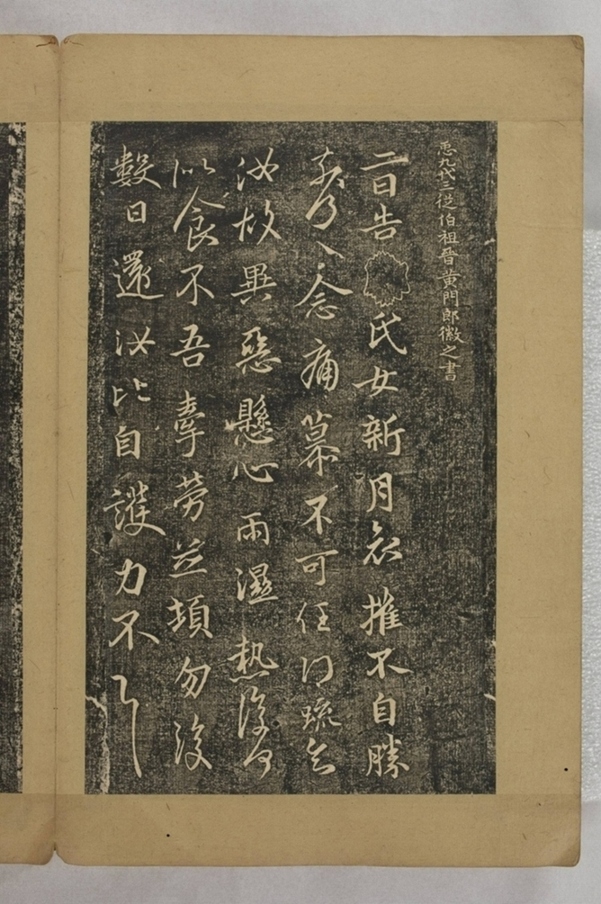 𢘑九代三從伯祖晉黃門郎徽之書
二日告氏女新月哀摧不自勝
奈何〻念痛慕不可任得疏知
汝故異惡懸心雨濕熱復何
似食不吾牽勞並頓勿復
數日還汝比自護力不